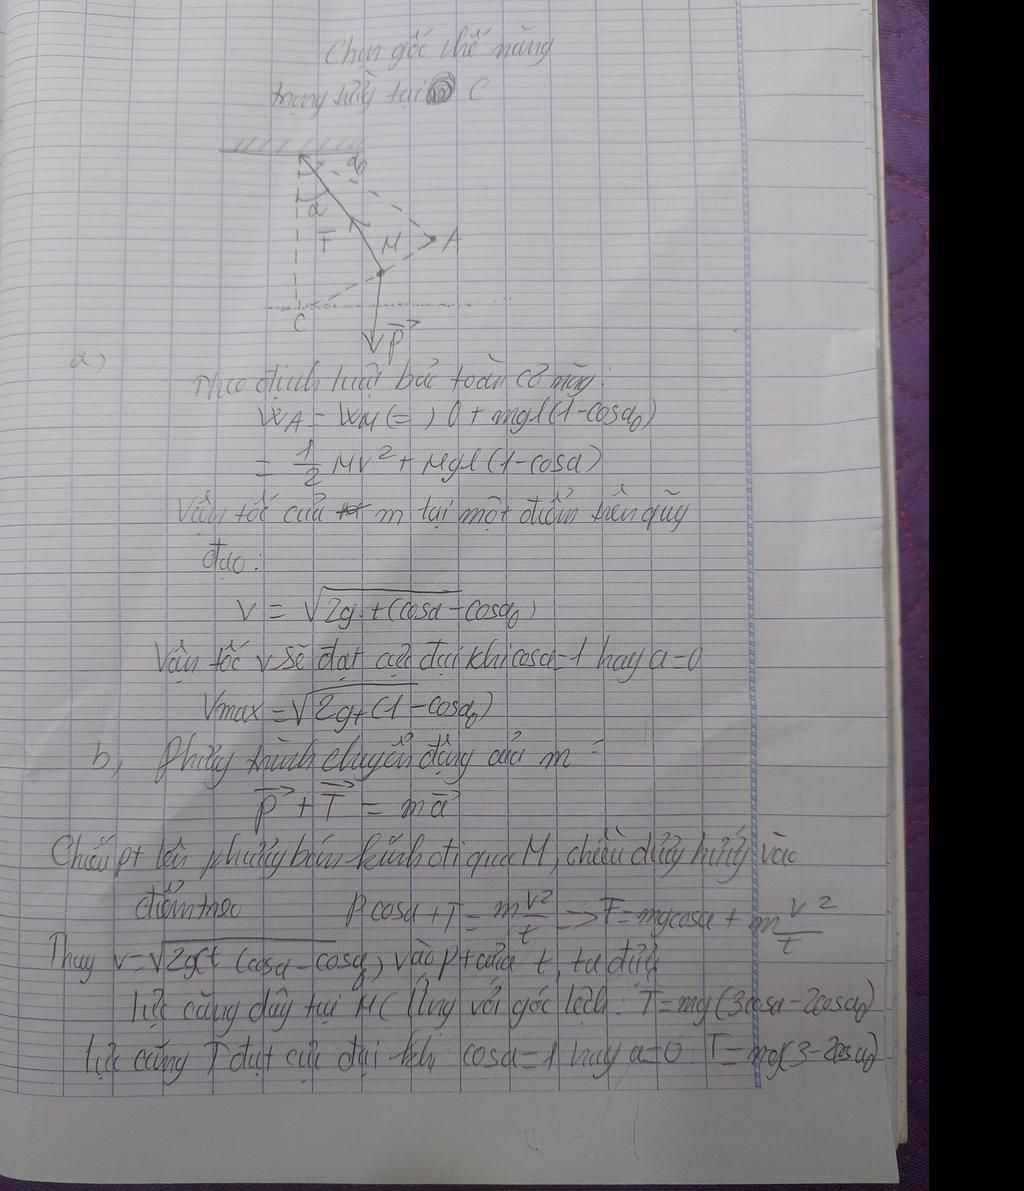 Chọn gốc thế năng
trọng lực tại C
α0
α
T
M
A
C
P
a)
Theo định luật bảo toàn cơ năng:
WA = WM (=) 0 + mgl(1-cosα0)
= 1/2 MV² + Mgl(1-cosα)
Vận tốc của m tại một điểm trên quỹ
đạo:
V = √2g.t(cosα-cosα0)
Vận tốc v sẽ đạt cực đại khi cosα=1 hay α=0
Vmax = √2gt(1-cosα0)
b, Phương trình chuyển động của m:
P + T = ma
Chiếu pt lên phương bán kính đi qua M, chiều dương hướng vào
điểm treo P cosα + T = m V²/t => T = mgcosα + m V²/t
Thay v=√2gt(cosα-cosα0) vào pt của t, ta được
lực căng dây tại M( Ứng với góc lệch: T=mg(3cosα-2cosα0)
lực căng T đạt cực đại khi cosα=1 hay α=0: T=mg(3-2cosα0)